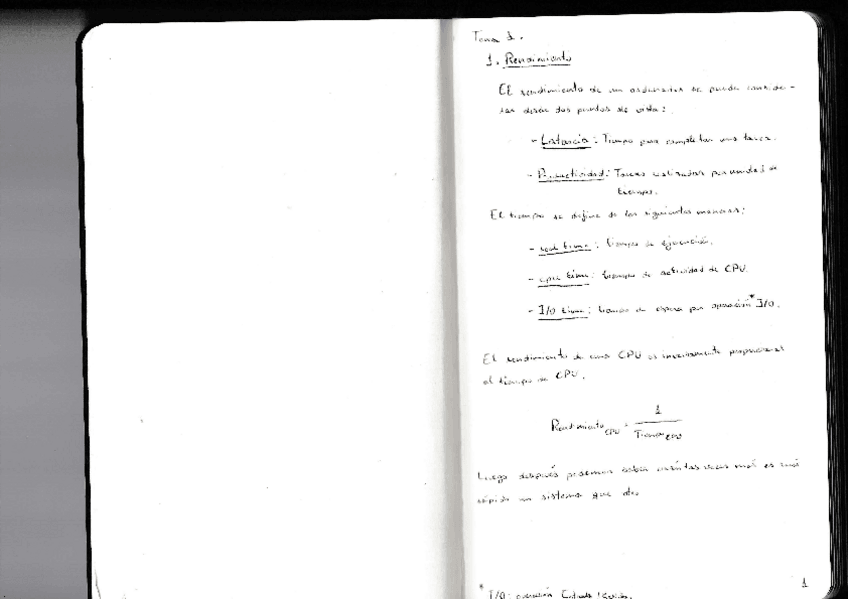 Tema 1.
1. Rendimiento
El rendimiento de un ordenador se puede conside-
rar desde dos puntos de vista:
- Latencia: Tiempo para completar una tarea.
- Productividad: Tareas realizadas por unidad de
tiempo.
El tiempo se define de las siguientes maneras:
- time: tiempo de ejecución.
- cpu time: tiempo de actividad de CPU.
- I/O time: tiempo de espera por operación* I/O.
El rendimiento de una CPU es inversamente proporcional
al tiempo de CPU.
Rendimiento CPU = 1 / Tiempo CPU
Luego después podemos saber cuántas veces más es más
rápido un sistema que
* I/O: operación Entrada/Salida.
1